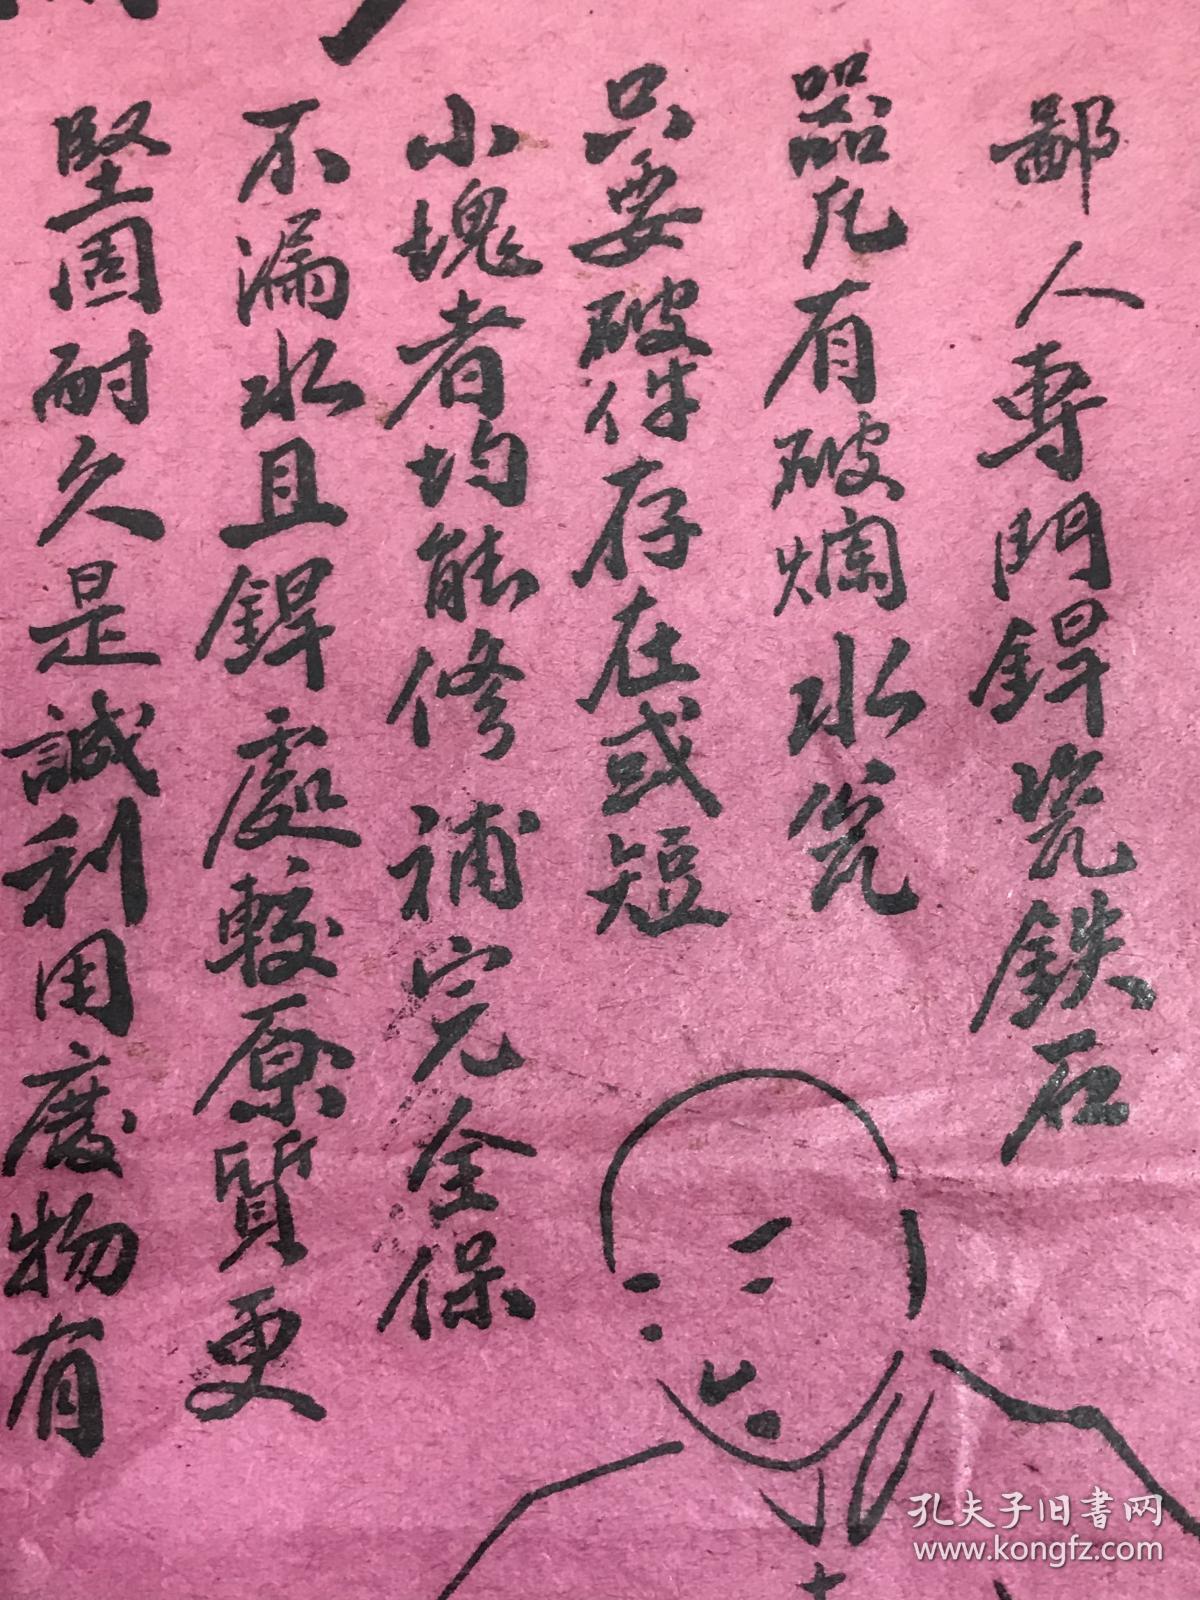 鄙人專門銲瓷鉄石
器凡有破爛水瓮
只要破件存在或短
小塊者均能修補完全保
不漏水且銲處較原質更
堅固耐久是誠利用廢物有
孔夫子旧书网
www.kongfz.com